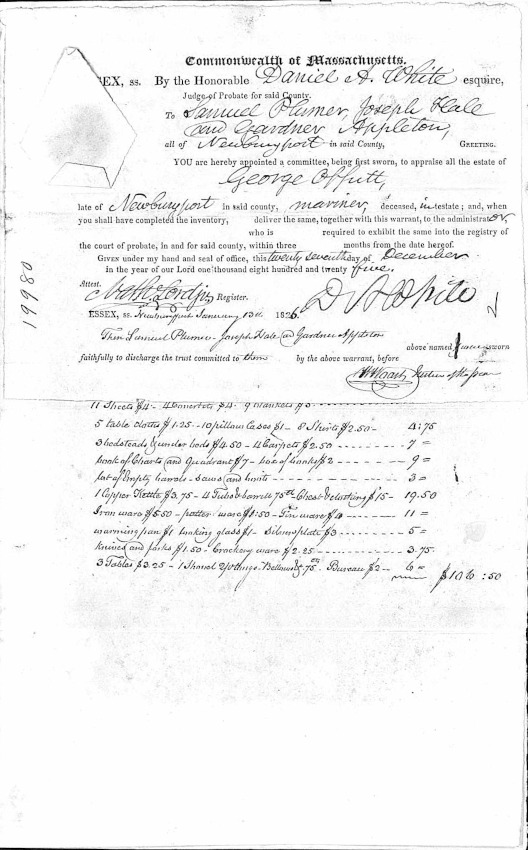 Commonwealth of Massachusetts.
SSEX, ss. By the Honorable Daniel A. White esquire,
Judge of Probate for said County.
To Samuel Plumer, Joseph Hale
and Gardner Appleton,
all of Newburyport in said County, GREETING.
YOU are hereby appointed a committee, being first sworn, to appraise all the estate of
George Offutt,
late of Newburyport in said county, mariner, deceased, intestate; and, when
you shall have completed the inventory, deliver the same, together with this warrant, to the administrator,
who is required to exhibit the same into the registry of
the court of probate, in and for said county, within three months from the date hereof.
GIVEN under my hand and seal of office, this twenty seventh day of December
in the year of our Lord one thousand eight hundred and twenty five.
Attest.
Nath Lord jr Register.
D A White
ESSEX, ss. Newburyport January 13th 1826.
Then Samuel Plumer Joseph Hale and Gardner Appleton
above named sworn
faithfully to discharge the trust committed to them by the above warrant, before
Justice of
19980
11 Sheets $4 - 4 Coverlets $4 - 9 blankets $3
5 table cloths $1.25 - 10 pillow Cases $1 - 8 Shirts $2.50 - 4.75
3 bedsteads & under beds $4.50 - 4 Carpets $2.50 - 7 =
book of Charts and Quadrant $7 - box of books $2 - 9 =
lot of Empty barrels - saws and - 3 =
1 Copper Kettle $3.75 - 4 Tubs & barrell 75 cts Chest & clothing $15 - 19.50
Iron ware $5.50 - potter ware $1.50 - Tin ware $4 - 11 =
warming pan $1 looking glass $1 - Silver plate $3 - 5 =
knives and forks $1.50 - Crockery ware $2.25 - 3.75
3 Tables $3.25 - 1 Shovel Bellows 75 cts Bureau $2 - 6 =
$106:50